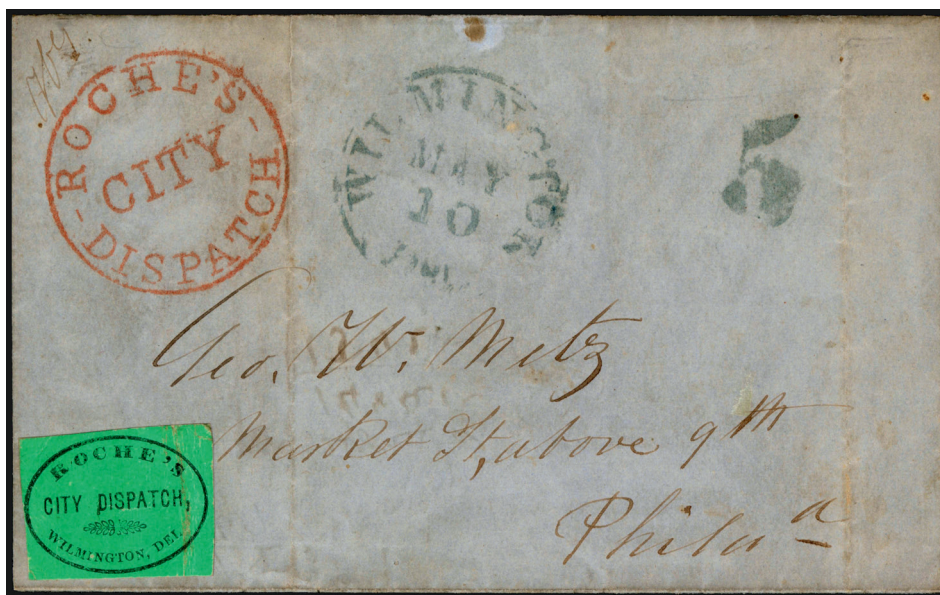 ROCHE'S
CITY
DISPATCH
WILMINGTON
MAY
10
5
Geo. W. Metz
Market St, above 9th
Phila
ROCHE'S
CITY DISPATCH,
WILMINGTON, DEL